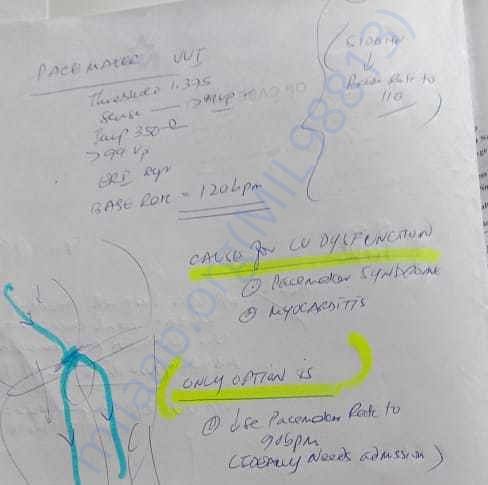 PACEMAKER VVI
Threshold 1.375
Sense
Imp 350
>99 Vp
ERI
BASE RATE = 120bpm
↓
Rate to
110
CAUSE for LV DYSFUNCTION
① Pacemaker SYNDROME
② MYOCARDITIS
ONLY OPTION is
① ↓se Pacemaker Rate to
90bpm
(IDEALLY Needs admission)
miaap.org(MIL98813)